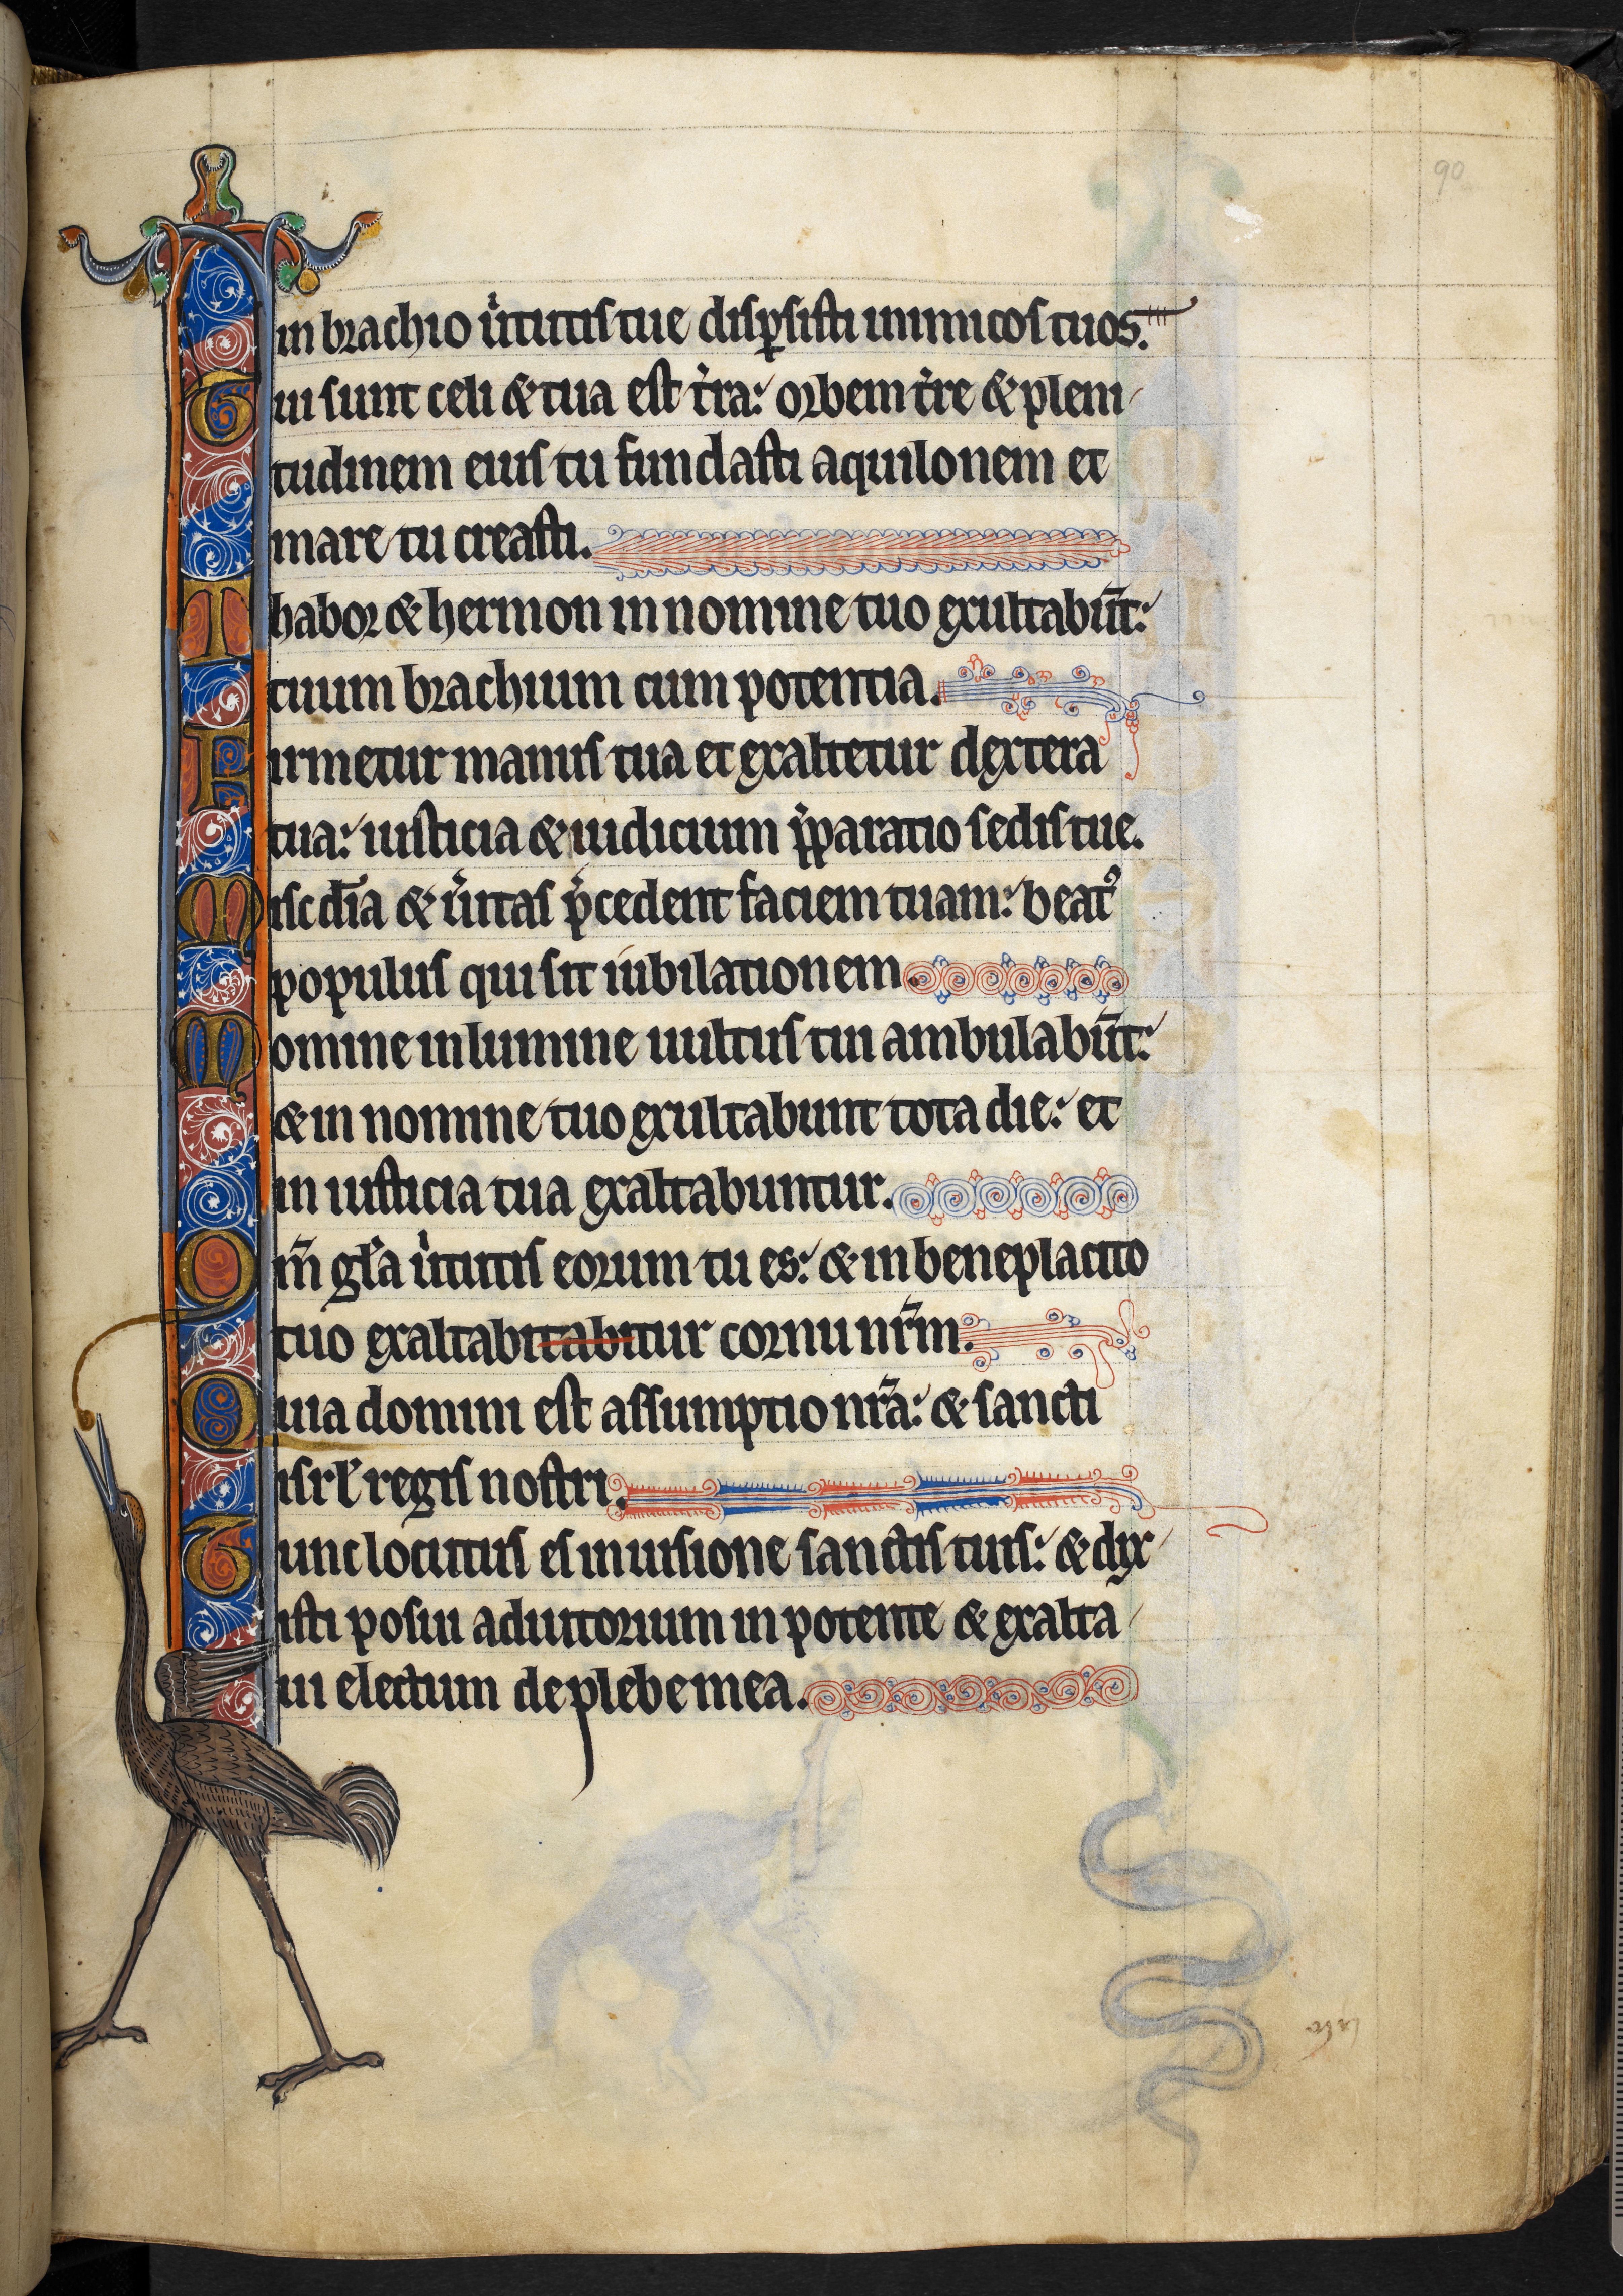 90
in brachio u͛tutis tue disꝑsisti inimicos tuos.
Tui sunt celi & tua est t͛ra: orbem t͛re & pleni
tudinem eius tu fundasti aquilonem et
mare tu creasti.
Thabor & hermon in nomine tuo exultabūt:
tuum brachium cum potentia.
Firmetur manus tua et exaltetur dextera
tua: iusticia & iudicium p͛paratio sedis tue.
Misc̄dia & u͛itas p͛cedent faciem tuam: beatꝰ
populus qui sit iubilationem.
Domine in lumine uultus tui ambulabūt:
& in nomine tuo exultabunt tota die: et
in iusticia tua exaltabuntur.
Qm̄ gl͛a u͛tutis eorum tu es: & in beneplacito
tuo exaltabitabitur cornu nr̄m.
Quia domini est assumptio nr̄a: & sancti
isrl̄ regis nostri.
Tunc locutus es in uisione sanctis tuis: & dix
isti posui adiutorium in potente & exalta
ui electum de plebe mea.